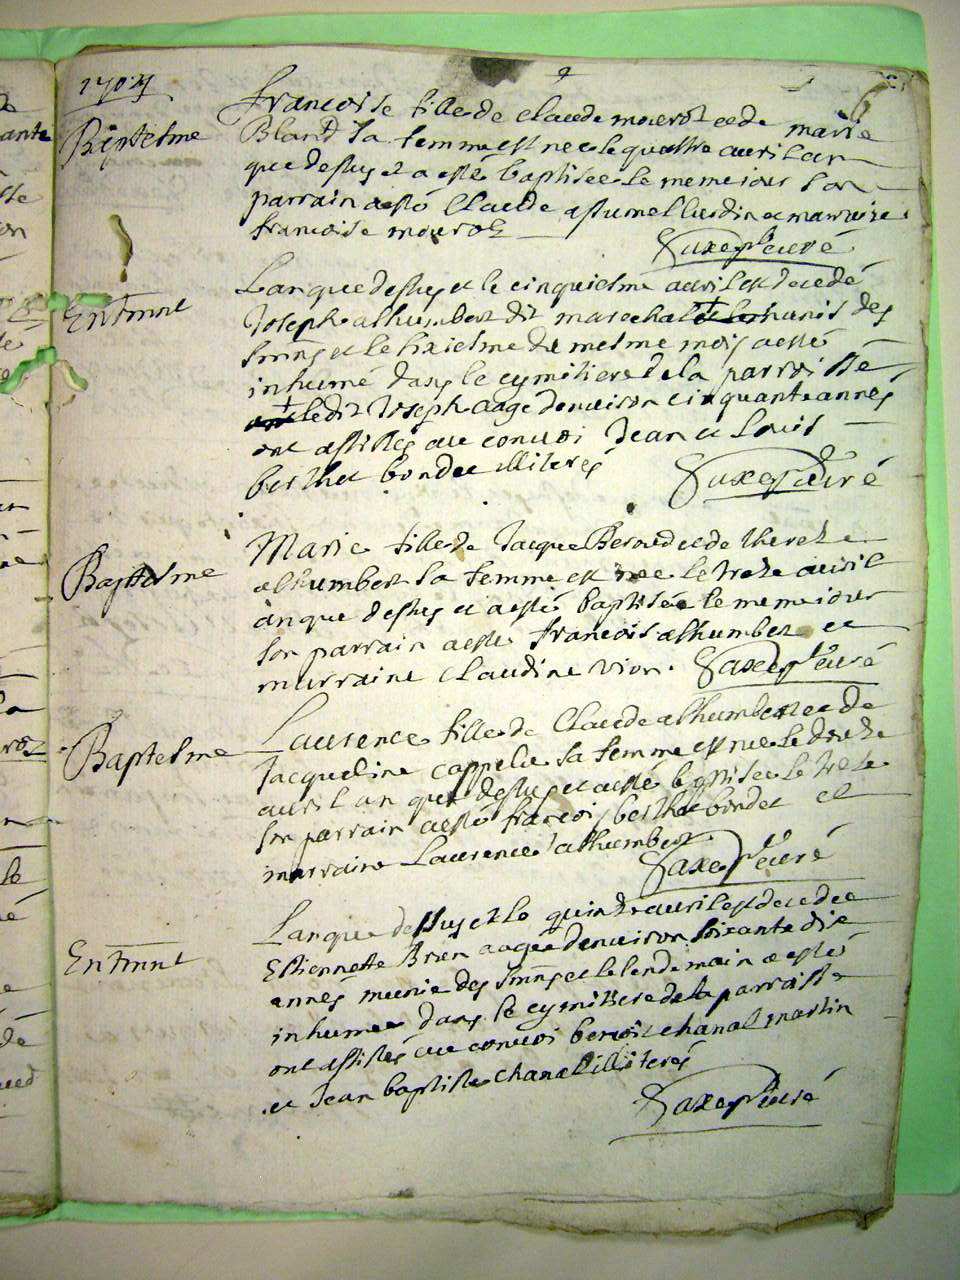 Baptesme
francoise fille de Claude mouroz et de marie
Bland sa femme est nee le quattre avril lan
que dessus et a esté baptisée le meme jour son
parrain a esté Claude asthumet et marraine
francoise mouroz
Saxe ptre curé
Enterrmnt
Lan que dessus et le cinquiesme avril est decedé
Joseph althumbert dit marechal munis des
Srmns et le sixiesme du mesme mois a esté
inhumé dans le cymitiere de la parroisse
ledit Joseph aagé denviron cinquante années
ont assistés au convoi Jean et Louis
berthet bondet illiterés
Saxe ptre curé
Baptesme
Marie fille de Jacque Beroud et de therese
althumbert sa femme est nee le treze avril
an que dessus et a esté baptisée le meme jour
son parrain a esté francois althumbert et
marraine Claudine vion. Saxe ptre curé
Baptesme
Laurence fille de Claude althumbert et de
Jacqueline cappelu sa femme est nee le douze
avril an que dessus et a esté baptisee le treze
son parrain a esté francois berthet bondet et
marraine Laurence althumbert
Saxe ptre curé
Enterrmnt
Lan que dessus et le quinze avril est decedee
Estiennette Brien aagée denviron soixante dix
annés munie des Srmns et le lendemain a esté
inhumee dans le cymitiere de la parroisse
ont assistés au convoi benoit chanal martin
et Jean baptiste chanal illiterés
Saxe ptre curé